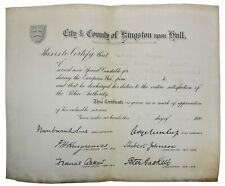 City & County of Kingston upon Hull,
This is to Certify that
of
served as a Special Constable for
during the European War, from to
and that he discharged his duties to the entire satisfaction of
the Police Authority.
This Certificate is given as a mark of appreciation
of his valuable services.
Given under our hands this day of 191
Nunburnholme
Hubert Johnson
Francis Askew
Peter Gaskell